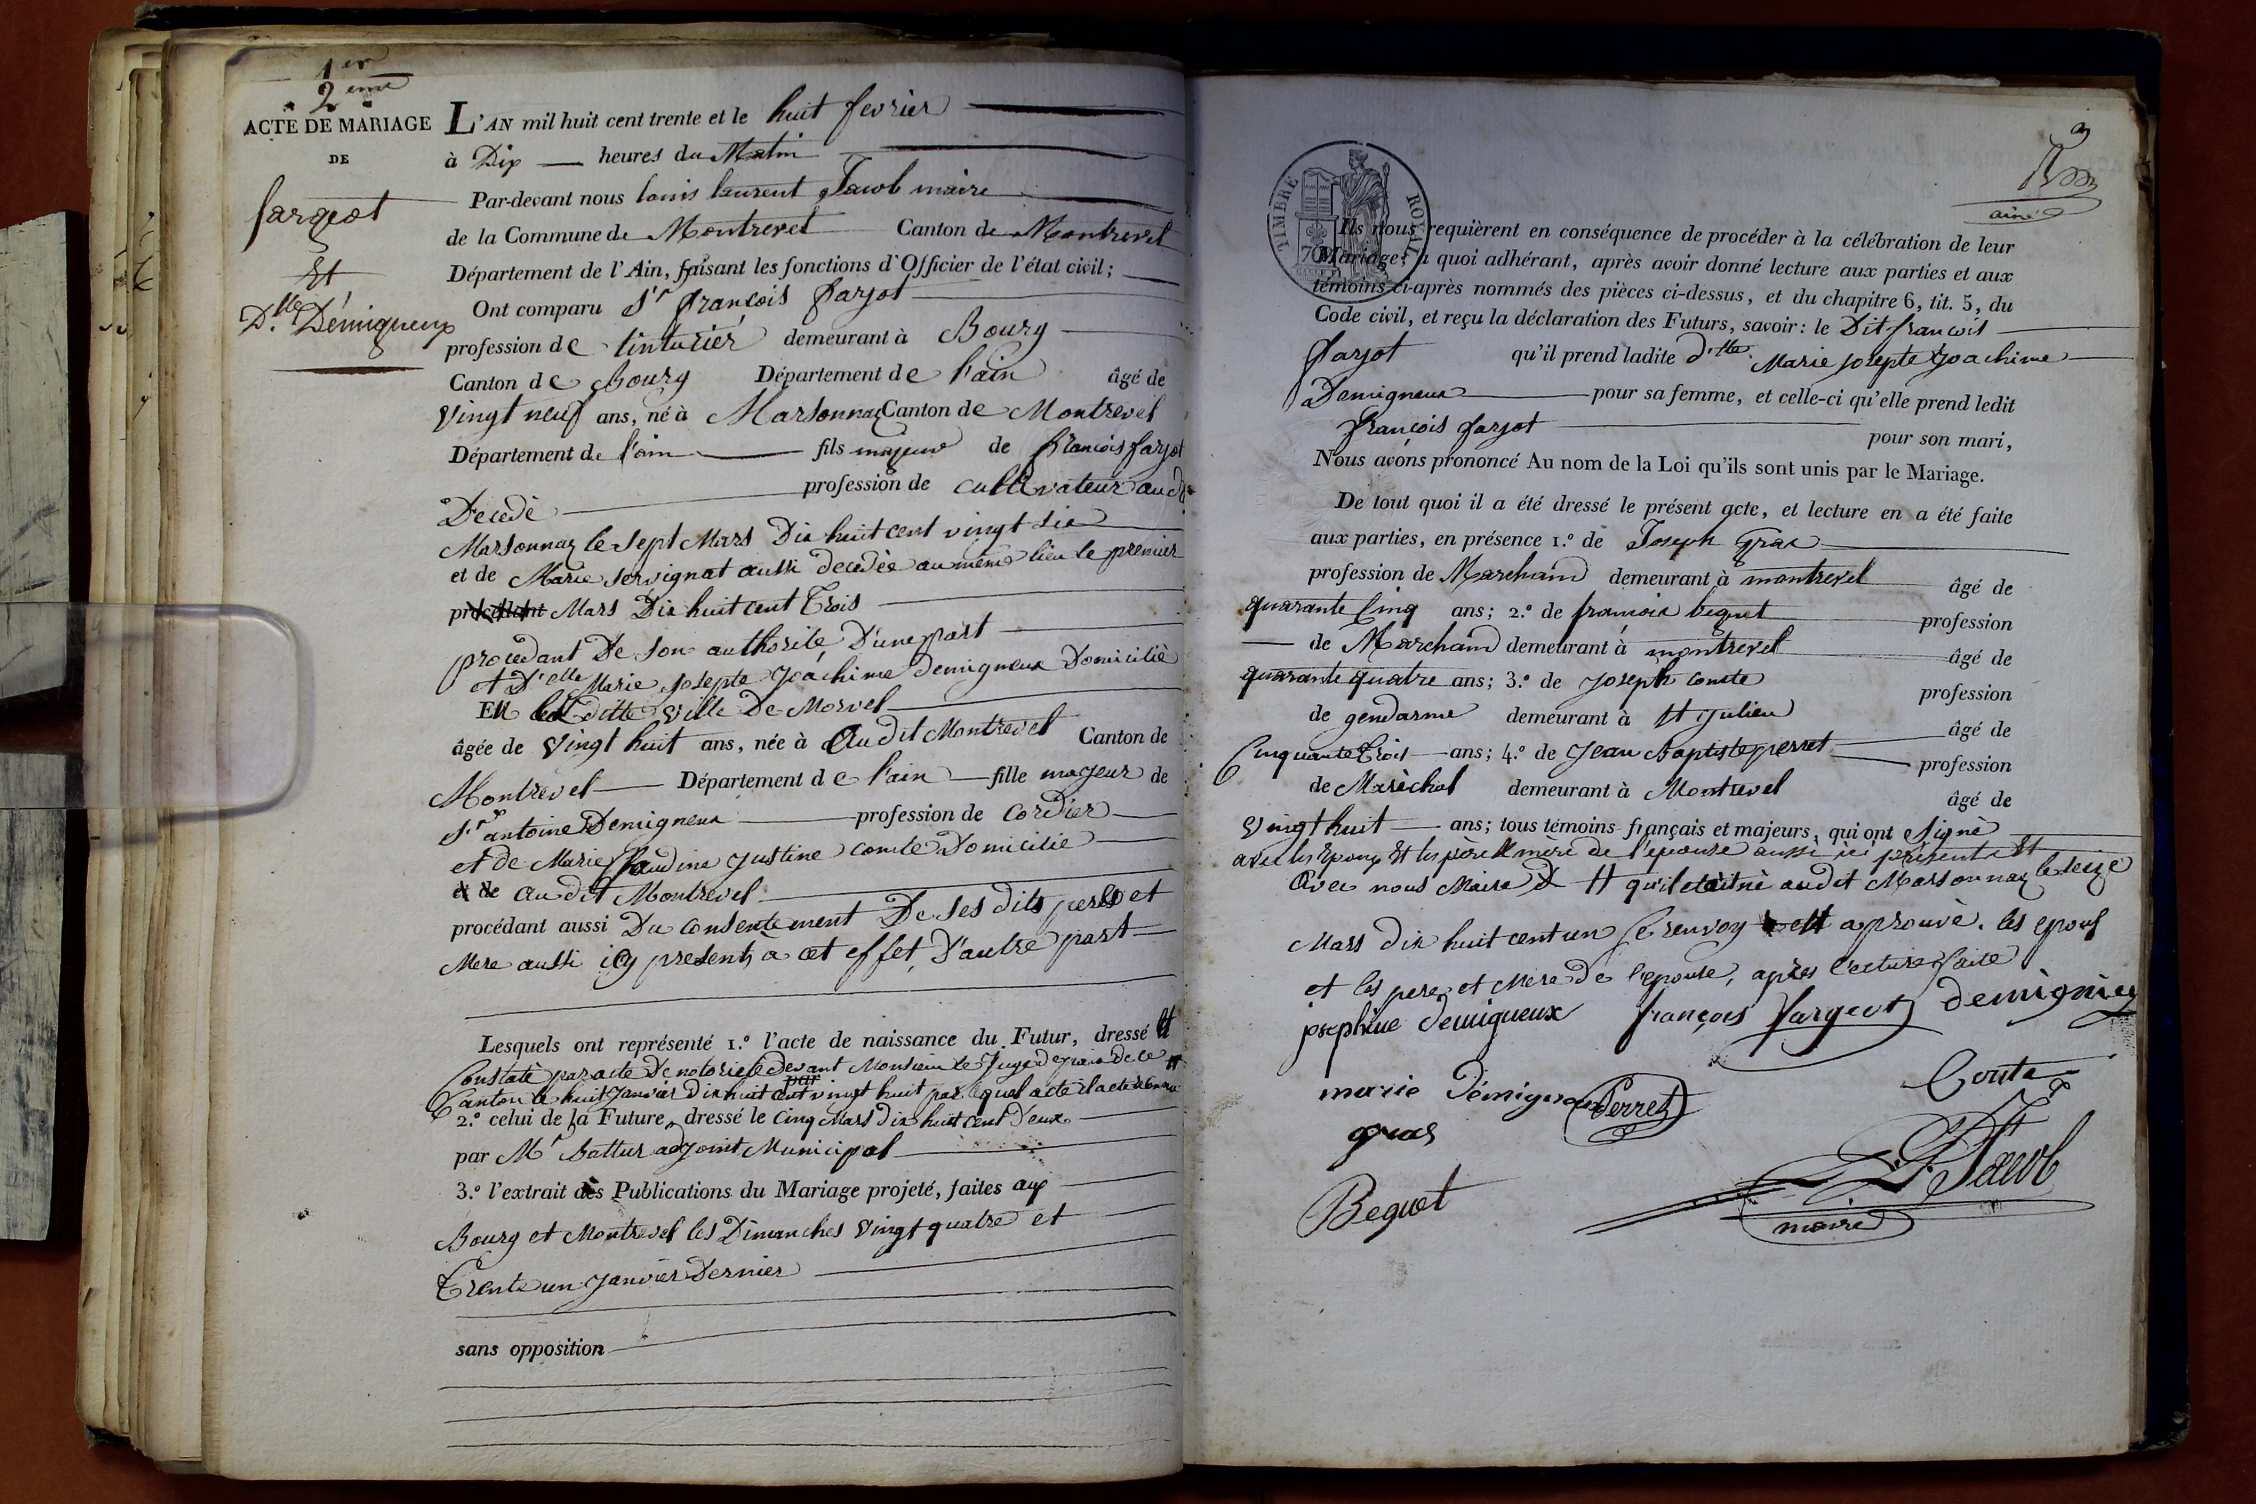 1er
2eme
ACTE DE MARIAGE
DE
fargeot
Et
Dlle Démigneux
L'AN mil huit cent trente et le huit fevrier
à Dix heures du Matin
Par-devant nous louis laurent Jacob maire
de la Commune de Montrevel Canton de Montrevel
Département de l'Ain, faisant les fonctions d'Officier de l'état civil;
Ont comparu Sr françois farjot
profession de tinturier demeurant à Bourg
Canton de Bourg Département de l'ain âgé de
vingt neuf ans, né à Marsonnaz Canton de Montrevel
Département de l'ain fils majeur de francois farjot
profession de cultivateur au dt
Decedé
Marsonnaz le sept Mars Dix huit cent vingt six
et de Marie servignat aussi decedée au même lieu le premier
Mars Dix huit cent Trois
procedant De son authorité D'une part
et D'elle Marie Josepte Joachime demigneux Domicilié
En la ditte ville De
âgée de vingt huit ans, née à Audit Montrevel Canton de
Montrevel Département de l'ain fille majeur de
Sr antoine Demigneux profession de cordier
et de Marie Justine comte Domicilie
et de au dit Montrevel
procédant aussi Du consentement De ses dits peres et
Mere aussi icy presents à cet effet, D'autre part
Lesquels ont représenté 1.º l'acte de naissance du Futur, dressé et
Constaté par acte De notorieté devant Monsieur le Juge de paix de ce
Canton le huit Janvier Dix huit cent vingt huit par lequel acte
par
2.º celui de la Future, dressé le cinq Mars dix huit cent Deux
par Mr Battur adjoint Municipal
3.º l'extrait des Publications du Mariage projeté, faites aux
Bourg et Montrevel les Dimanches vingt quatre et
Trente un Janvier Dernier
sans opposition
ainé
TIMBRE ROYAL
70
Ils nous requièrent en conséquence de procéder à la célébration de leur
Mariage; à quoi adhérant, après avoir donné lecture aux parties et aux
témoins ci-après nommés des pièces ci-dessus, et du chapitre 6, tit. 5, du
Code civil, et reçu la déclaration des Futurs, savoir: le Dit francois
farjot qu'il prend ladite d'lle Marie Josepte Joachime
Demigneux pour sa femme, et celle-ci qu'elle prend ledit
françois farjot pour son mari,
Nous avons prononcé Au nom de la Loi qu'ils sont unis par le Mariage.
De tout quoi il a été dressé le présent acte, et lecture en a été faite
aux parties, en présence 1.º de Joseph Gras
profession de Marchand demeurant à montrevel âgé de
quarante Cinq ans; 2.º de francois beguet profession
de Marchand demeurant à montrevel âgé de
quarante quatre ans; 3.º de Joseph Comte profession
de gendarme demeurant à St Julien âgé de
Cinquante trois ans; 4.º de Jean Baptiste perret profession
de Maréchal demeurant à Montrevel âgé de
vingt huit ans; tous témoins français et majeurs, qui ont signé
avec les epoux et les père et mère de l'épouse aussi ici présents et
avec nous Maire # qu'il était né audit Marsonnaz le seize
Mars dix huit cent un Ce renvoy est aprouvé. les epoux
et les pere et Mere De l'epouse, apres lecture faite
josephine demigueux françois fargeot demignieu
marie Démigneux Perret Conte
gras
Beguet L. L. Jacob
maire